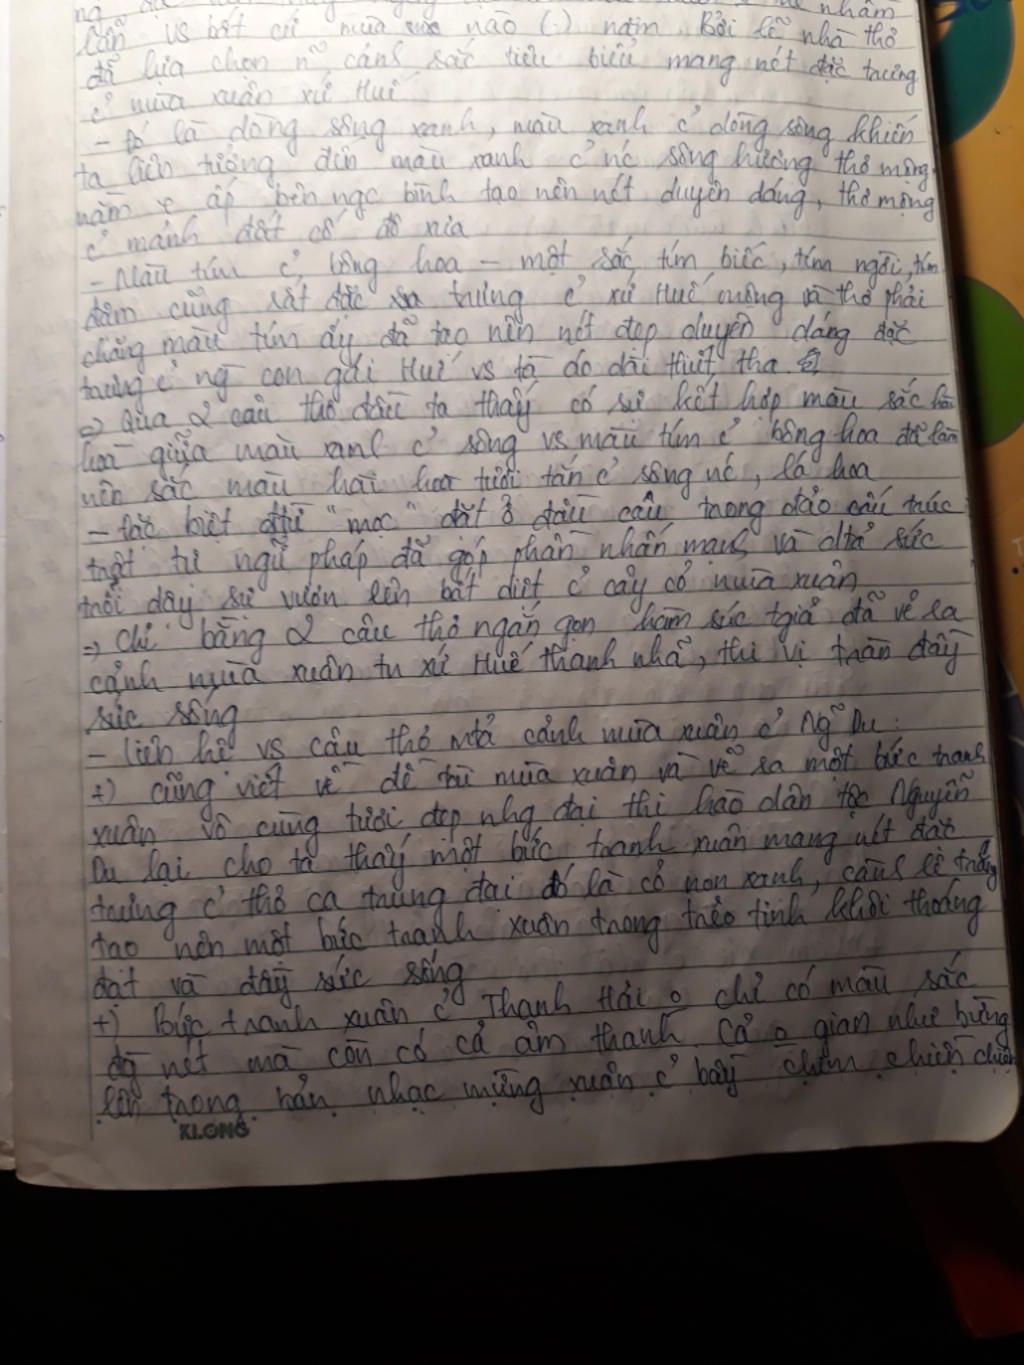 lẫn vs bất cứ mùa nào (.) năm. Bởi lẽ nhà thơ
đã lựa chọn n~ cảnh sắc tiêu biểu mang nét đặc trưng
c' mùa xuân xứ Huế
- Đó là dòng sông xanh, màu xanh c' dòng sông khiến
ta liên tưởng đến màu xanh c' nc sông hương thơ mộng
nằm ấp bên ngọc bình tạo nên nét duyên dáng, thơ mộng
c' mảnh đất cố đô xưa
- Màu tím c' bông hoa - một sắc tím biếc, tím ngời, tím
đậm cũng rất đặc trưng c' xứ Huế mộng và thơ phải
chăng màu tím ấy đã tạo nên nét đẹp duyên dáng đặc
trưng c' ng con gái Huế vs tà áo dài thiết tha
=> Qua 2 câu thơ đầu ta thấy có sự kết hợp màu sắc hài
hoà giữa màu xanh c' sông vs màu tím c' bông hoa đã làm
nên sắc màu hài hoà tươi tắn c' sông nc, lá hoa
- Đặc biệt đtừ "mọc" đặt ở đầu câu trong đảo cấu trúc
trật tự ngữ pháp đã góp phần nhấn mạnh và dtả sức
trỗi dậy sự vươn lên bất diệt c' cây cỏ mùa xuân
=> Chỉ bằng 2 câu thơ ngắn gọn hàm súc tgiả đã vẽ ra
cảnh mùa xuân tn xứ Huế thanh nhã, thi vị tràn đầy
sức sống
- Liên hệ vs câu thơ mtả cảnh mùa xuân c' Ng~ Du:
+) cũng viết về đề tài mùa xuân và vẽ ra một bức tranh
xuân vô cùng tươi đẹp nhg đại thi hào dân tộc Nguyễn
Du lại cho ta thấy một bức tranh xuân mang nét đặc
trưng c' thơ ca trung đại đó là cỏ non xanh, cành lê trắng
tạo nên một bức tranh xuân trong trẻo tinh khôi thoáng
đạt và đầy sức sống
+) Bức tranh xuân c' Thanh Hải o chỉ có màu sắc
đg nét mà còn có cả âm thanh. Cả o gian như bừng
lên trong bản nhạc mừng xuân c' bầy chim chiền chiện
KLONG